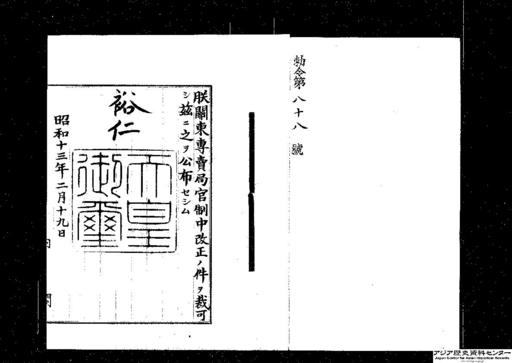 勅令第八十八號
朕關東專賣局官制中改正ノ件ヲ裁可
シ茲ニ之ヲ公布セシム
裕仁
天皇
御璽
昭和十三年二月十九日
内閣
アジア歴史資料センター
Japan Center for Asian Historical Records